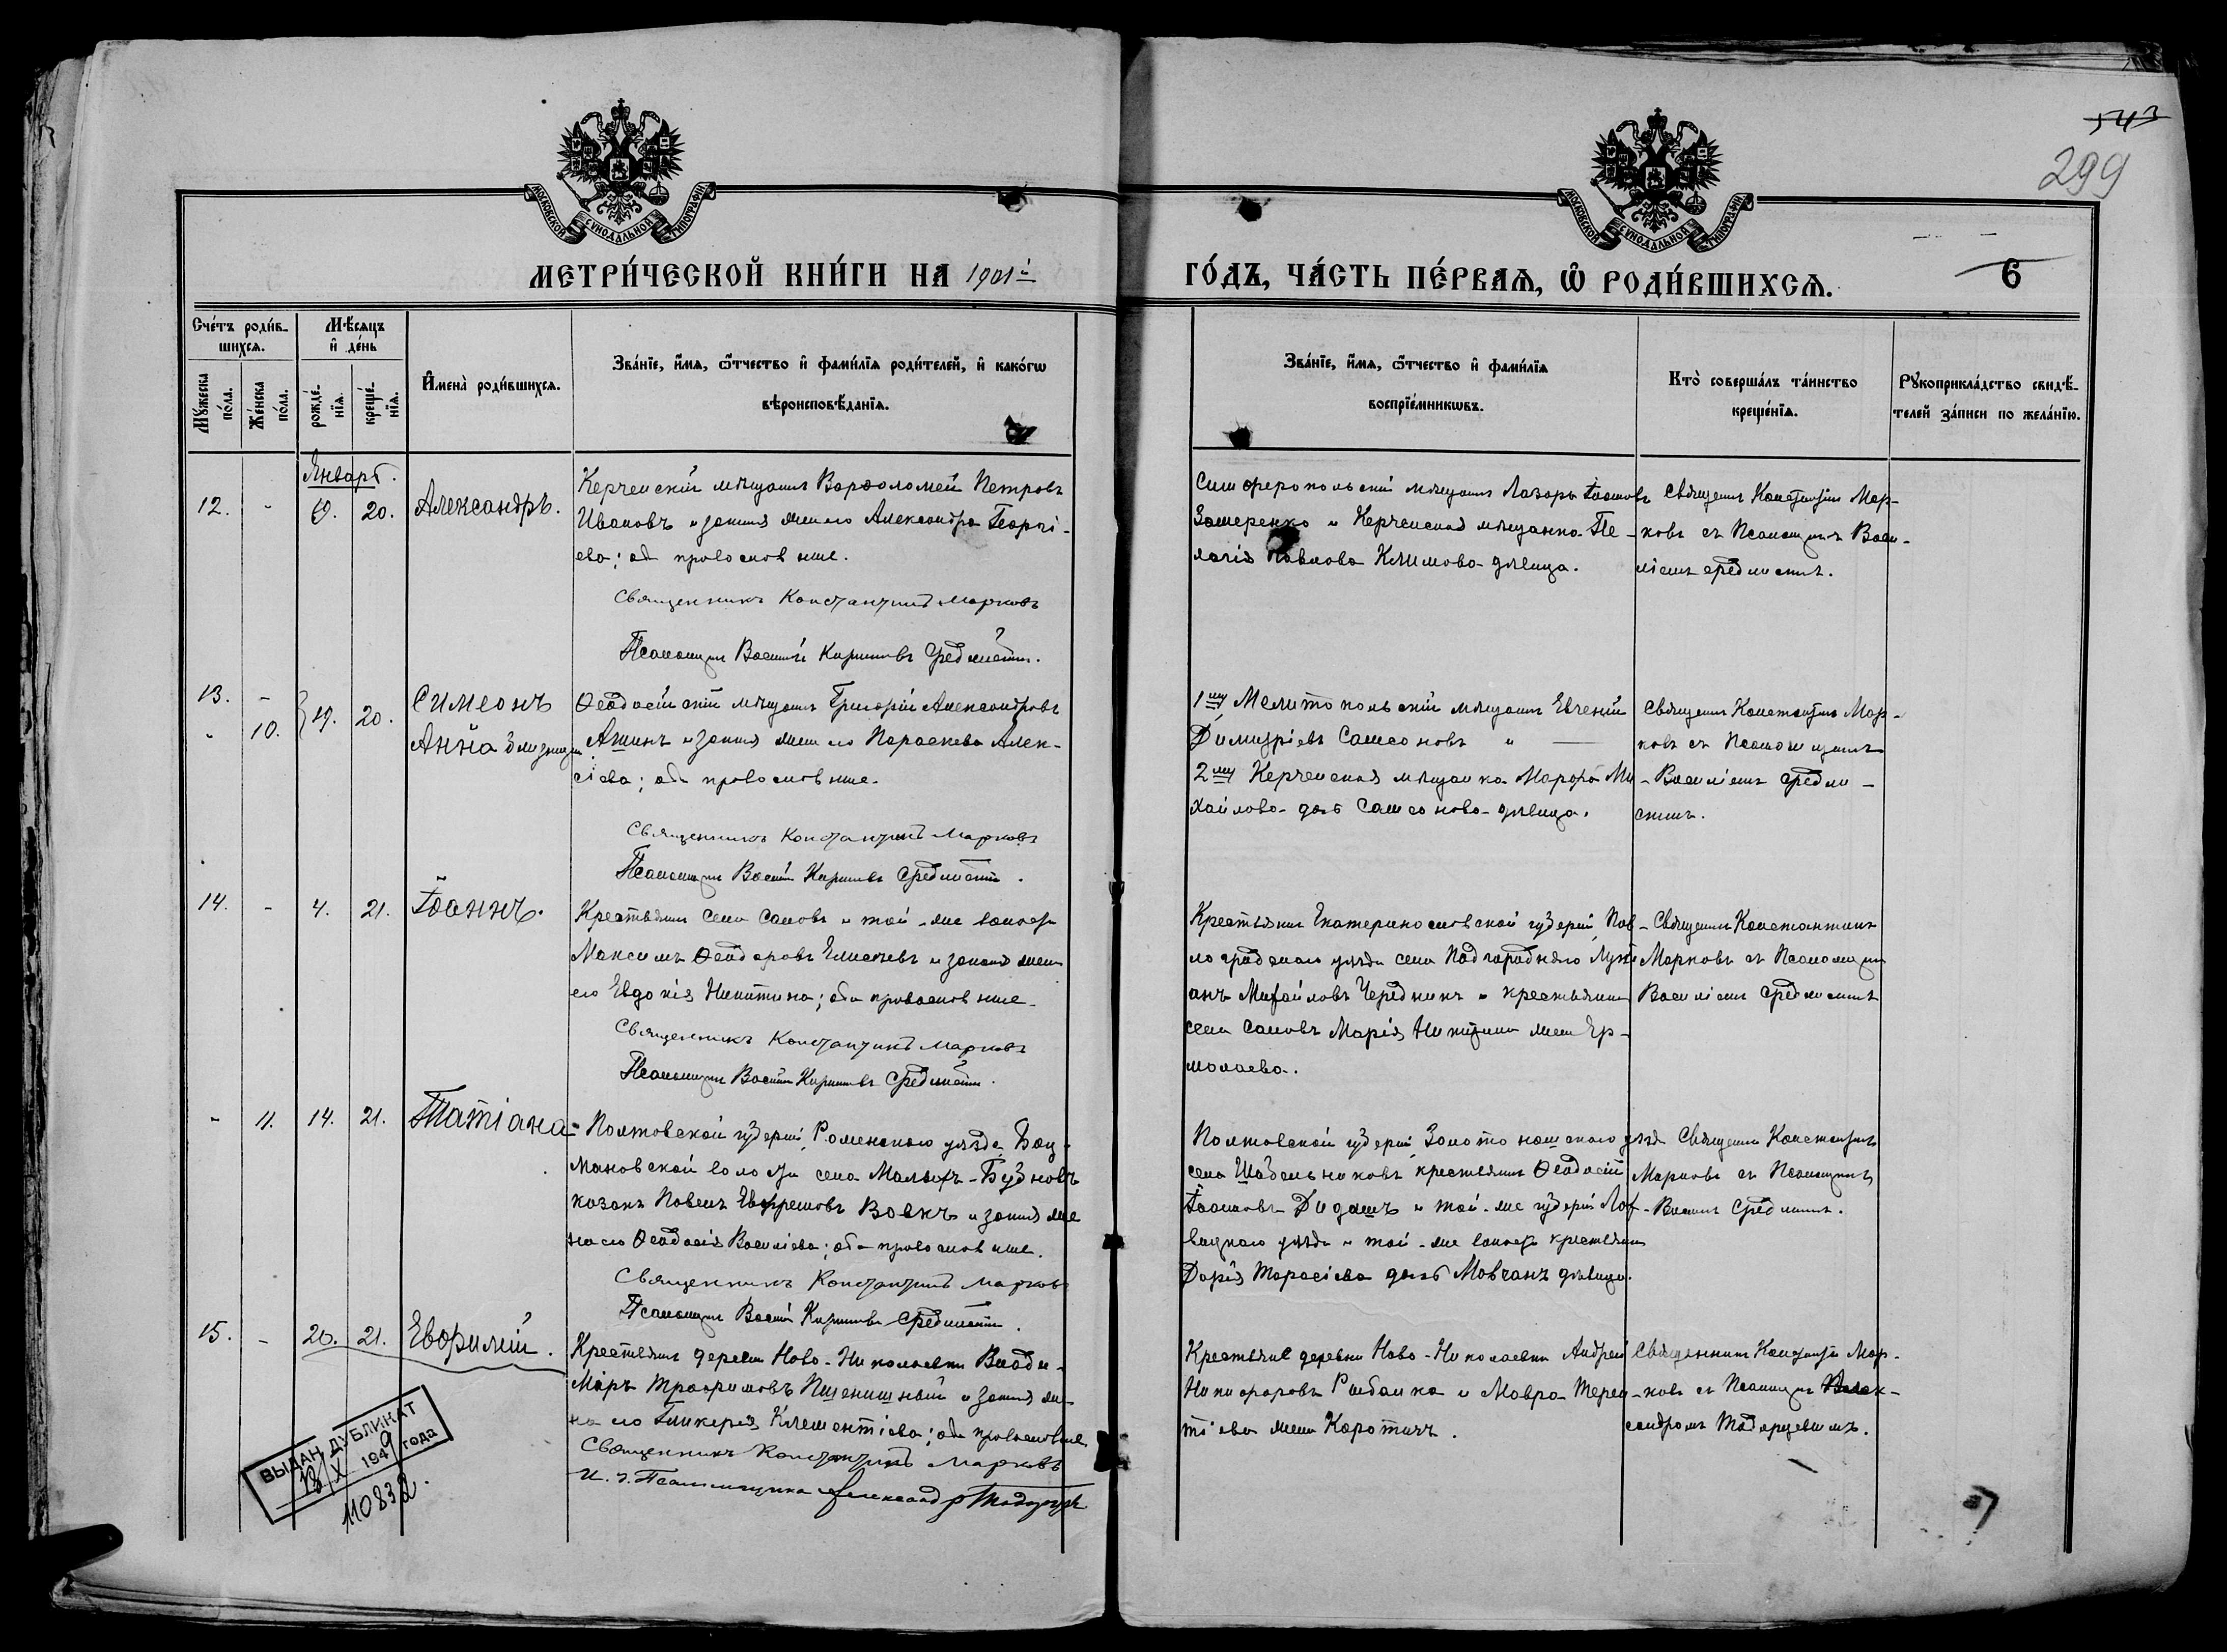 543
299
МОСКОВСКОЙ СѴНОДАЛЬНОЙ ТИПОГРАФІИ
МОСКОВСКОЙ СѴНОДАЛЬНОЙ ТИПОГРАФІИ
МЕТРИ́ЧЕСКОЙ КНИ́ГИ НА 1901й
ГО́ДЪ, ЧА́СТЬ ПЕ́РВАѦ, Ѡ҆ РОДИ́ВШИХСѦ.
6
Сче́тъ роди́в-
шихсѧ.
Мѣ́сѧцъ
и҆ де́нь
Мꙋ́жеска по́ла.
Же́нска по́ла.
рожде́-нїѧ.
креще́-нїѧ.
И҆мена̀ роди́вшихсѧ.
Зва́нїе, и҆́мѧ, ѻ҆́тчество и҆ фами́лїѧ роди́телей, и҆ како́гѡ
вѣроисповѣ́данїѧ.
Зва́нїе, и҆́мѧ, ѻ҆́тчество и҆ фами́лїѧ
воспрїе́мникѡвъ.
Кто̀ соверша́лъ та́инство
креще́нїѧ.
Рꙋкоприкла́дство свидѣ́-
телей за́писи по жела́нїю.
Январь.
12. - 9. 20. Александръ.
Керченскій мѣщанинъ Варѳоломей Петровъ
Ивановъ и законная жена его Александра Георгі-
ева; оба православные.
Священникъ Константинъ Марковъ
Псаломщикъ Василій Кирилловъ Срединскій.
Симферопольскій мѣщанинъ Лазарь Іоанновъ
Замеренко и Керченская мѣщанка Пе-
лагія Павлова Климова девица.
Священникъ Константинъ Мар-
ковъ съ Псаломщикомъ Васи-
ліемъ Срединскимъ.
13. - 19. 20. Симеонъ
- 10. Анна близнецы
Ѳеодосійскій мѣщанинъ Григорій Александровъ
Ашинъ и законная жена его Параскева Алек-
сіева; оба православные.
Священникъ Константинъ Марковъ
Псаломщикъ Василій Кирилловъ Срединскій.
1му Мелитопольскій мѣщанинъ Евгеній
Димитріевъ Самсоновъ и
2му Керченская мѣщанка Марѳа Ми-
хайлова дочь Самсонова девица.
Священникъ Константинъ Мар-
ковъ съ Псаломщикомъ
Василіемъ Средин-
скимъ.
14. - 4. 21. Іоаннъ.
Крестьянинъ села Саловъ и той-же волости
Максимъ Ѳеодоровъ Елисеевъ и законная жена
его Евдокія Никитина; оба православные.
Священникъ Константинъ Марковъ
Псаломщикъ Василій Кирилловъ Срединскій.
Крестьянинъ Екатеринославской губерніи, Пав-
лоградскаго уѣзда села Подгородняго Луки-
анъ Михайловъ Чередникъ и крестьянка
села Саловъ Марія Никитина жена Ер-
молаева.
Священникъ Константинъ
Марковъ съ Псаломщикомъ
Василіемъ Срединскимъ
- 11. 14. 21. Татіана
Полтавской губерніи, Роменскаго уѣзда
мановской волости села Малыхъ-Будновъ
козакъ Павелъ Евфремовъ Вовкъ и законная же-
на его Ѳеодосія Василіева; оба православные.
Священникъ Константинъ Марковъ
Псаломщикъ Василій Кирилловъ Срединскій.
Полтавской губерніи, Золотоношскаго уѣзда
села Шабельниковъ крестьянинъ Ѳеодосій
Іоанновъ Дидашъ и той-же губерніи Лох-
вицкаго уѣзда и той-же волости крестьянка
Дарія Тарасіева дочь Мовчанъ девица.
Священникъ Константинъ
Марковъ съ Псаломщикомъ
Василіемъ Срединскимъ.
15. - 20. 21. Евфимій.
Крестьянинъ деревни Ново-Николаевки Влади-
міръ Трофимовъ Пшенишный и законная же-
на его Гликерія Климентіева; оба православные
Священникъ Константинъ Марковъ
И. д. Псаломщика Александръ
Крестьяне деревни Ново-Николаевки Андрей
Никифоровъ Рыбалка и Мавра Терен-
тіева жена Коротичъ.
Священникъ Константинъ Мар-
ковъ съ Псаломщикомъ Алек-
сандромъ
ВЫДАН ДУБЛИКАТ
13/X 1949 года
110832.